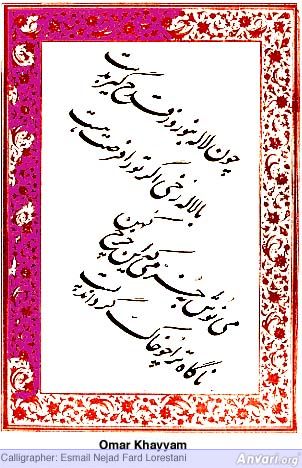 چون لاله بنوروز قدح گیر بدست
با لاله رخی اگر ترا فرصت هست
می نوش بخرمی که این چرخ کهن
ناگاه ترا چو خاک گرداند پست
Omar Khayyam
Calligrapher: Esmail Nejad Fard Lorestani
Anvari.org